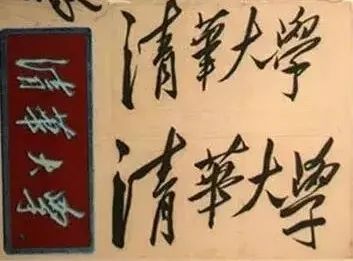 清華大學
清華大學
清華大學